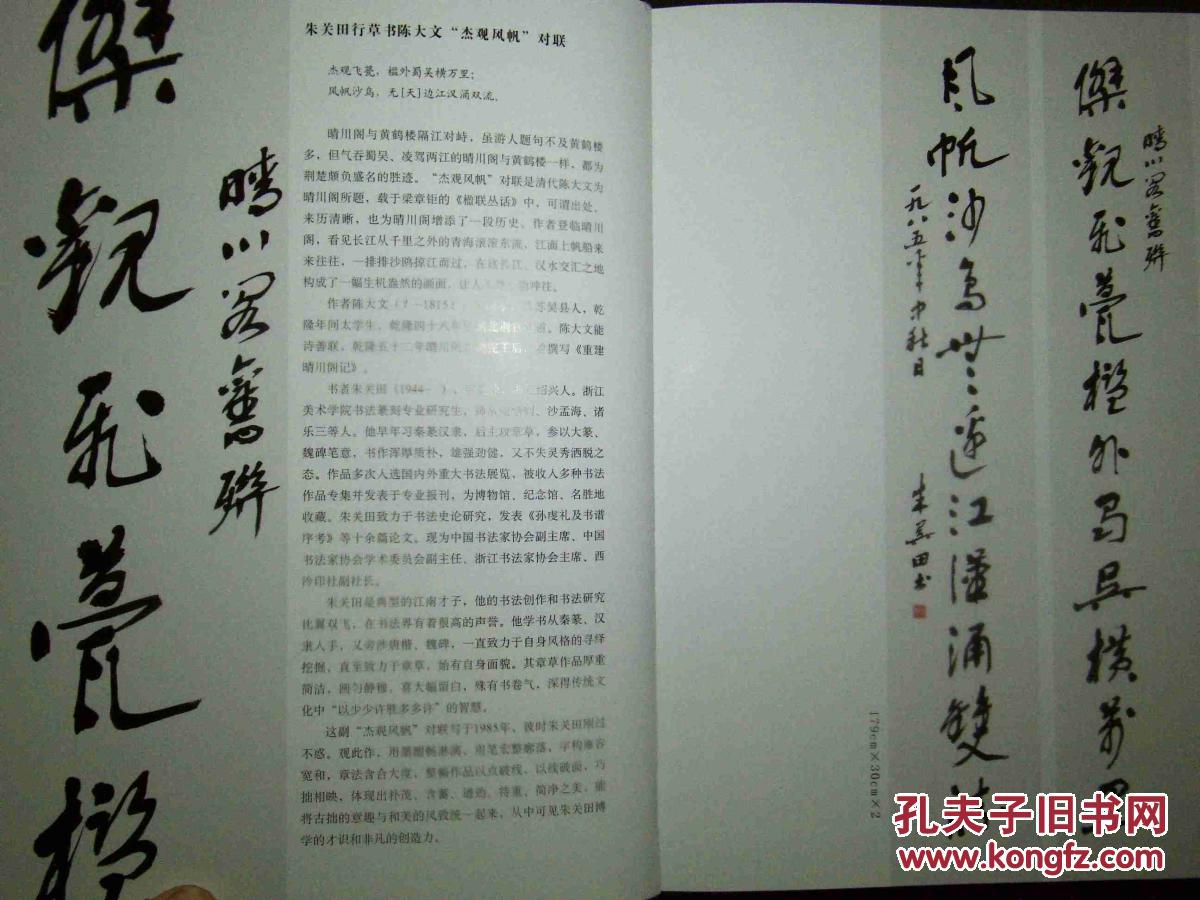 傑觀飛甍檻
晴川阁舊聯
朱关田行草书陈大文“杰观风帆”对联
杰观飞甍，槛外蜀吴横万里；
风帆沙鸟，无[天]边江汉涌双流。
晴川阁与黄鹤楼隔江对峙，虽游人题句不及黄鹤楼
多，但气吞蜀吴、凌驾两江的晴川阁与黄鹤楼一样，都为
荆楚颇负盛名的胜迹。“杰观风帆”对联是清代陈大文为
晴川阁所题，载于梁章钜的《楹联丛话》中，可谓出处、
来历清晰，也为晴川阁增添了一段历史。作者登临晴川
阁，看见长江从千里之外的青海滚滚东流，江面上帆船来
来往往，一排排沙鸥掠江而过，在这长江、汉水交汇之地
构成了一幅生机盎然的画面，让人
作者陈大文（？－1815）苏吴县人，乾
隆年间太学生，乾隆四十八年 陈大文能
诗善联，乾隆五十二年晴川阁 竣工后，撰写《重建
晴川阁记》。
书者朱关田（1944－ ），绍兴人。浙江
美术学院书法篆刻专业研究生，沙孟海、诸
乐三等人。他早年习秦篆汉隶，后主攻章草，参以大篆、
魏碑笔意，书作浑厚质朴，雄强劲健，又不失灵秀洒脱之
态。作品多次入选国内外重大书法展览，被收入多种书法
作品专集并发表于专业报刊，为博物馆、纪念馆、名胜地
收藏。朱关田致力于书法史论研究，发表《孙虔礼及书谱
序考》等十余篇论文。现为中国书法家协会副主席、中国
书法家协会学术委员会副主任、浙江书法家协会主席、西
泠印社副社长。
朱关田是典型的江南才子，他的书法创作和书法研究
比翼双飞，在书法界有着很高的声誉。他学书从秦篆、汉
隶入手，又旁涉唐楷、魏碑，一直致力于自身风格的寻绎
挖掘，直至致力于章草，始有自身面貌。其章草作品厚重
简洁，圆匀静穆，喜大幅留白，殊有书卷气，深得传统文
化中“以少少许胜多多许”的智慧。
这副“杰观风帆”对联写于1985年，彼时朱关田刚过
不惑。观此作，用墨酣畅淋漓，用笔宏整廓落，字构雍容
宽和，章法含合大度，整幅作品以点破线，以线破面，巧
拙相映，体现出朴茂、含蓄、遒劲、持重、简净之美，能
将古拙的意趣与和美的风致统一起来，从中可见朱关田博
学的才识和非凡的创造力。
晴川阁舊聯
傑觀飛甍檻外蜀吴橫萬里
風帆沙鳥無邊江漢涌雙流
一九八五年中秋日
朱关田书
179cm×30cm×2
孔夫子旧书网
www.kongfz.com